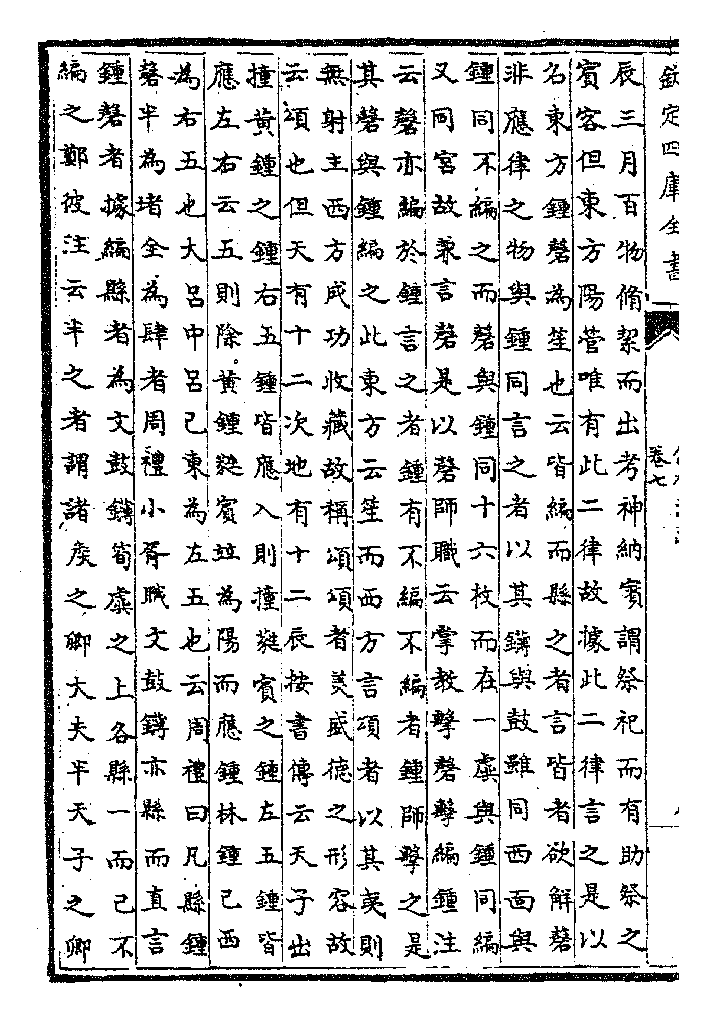 欽定四庫全書
卷七
辰三月百物脩絜而出考神納賓謂祭祀而有助祭之
賓客但東方陽管唯有此二律故據此二律言之是以
名東方鍾磬為笙也云皆編而縣之者言皆者欲解磬
非應律之物與鍾同言之者以其鎛與鼓雖同西面與
鍾同不編之而磬與鍾同十六枚而在一虡與鍾同編
又同宮故兼言磬是以磬師職云掌教擊磬擊編鍾注
云磬亦編於鍾言之者鍾有不編不編者鍾師擊之是
其磬與鍾編之此東方云笙而西方言頌者以其夷則
無射主西方成功收藏故稱頌頌者美盛德之形容故
云頌也但天有十二次地有十二辰按書傳云天子出
撞黃鍾之鍾右五鍾皆應入則撞蕤賓之鍾左五鍾皆
應左右云五則除黃鍾蕤賓竝為陽而應鍾林鍾已西
為右五也大呂中呂已東為左五也云周禮曰凡縣鍾
磬半為堵全為肆者周禮小胥職文鼓鎛亦縣而直言
鍾磬者據編縣者為文鼓鎛筍虡之上各縣一而已不
編之鄭彼注云半之者謂諸侯之卿大夫半天子之卿